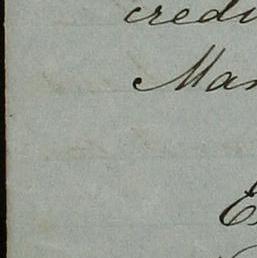 credi
Man
E